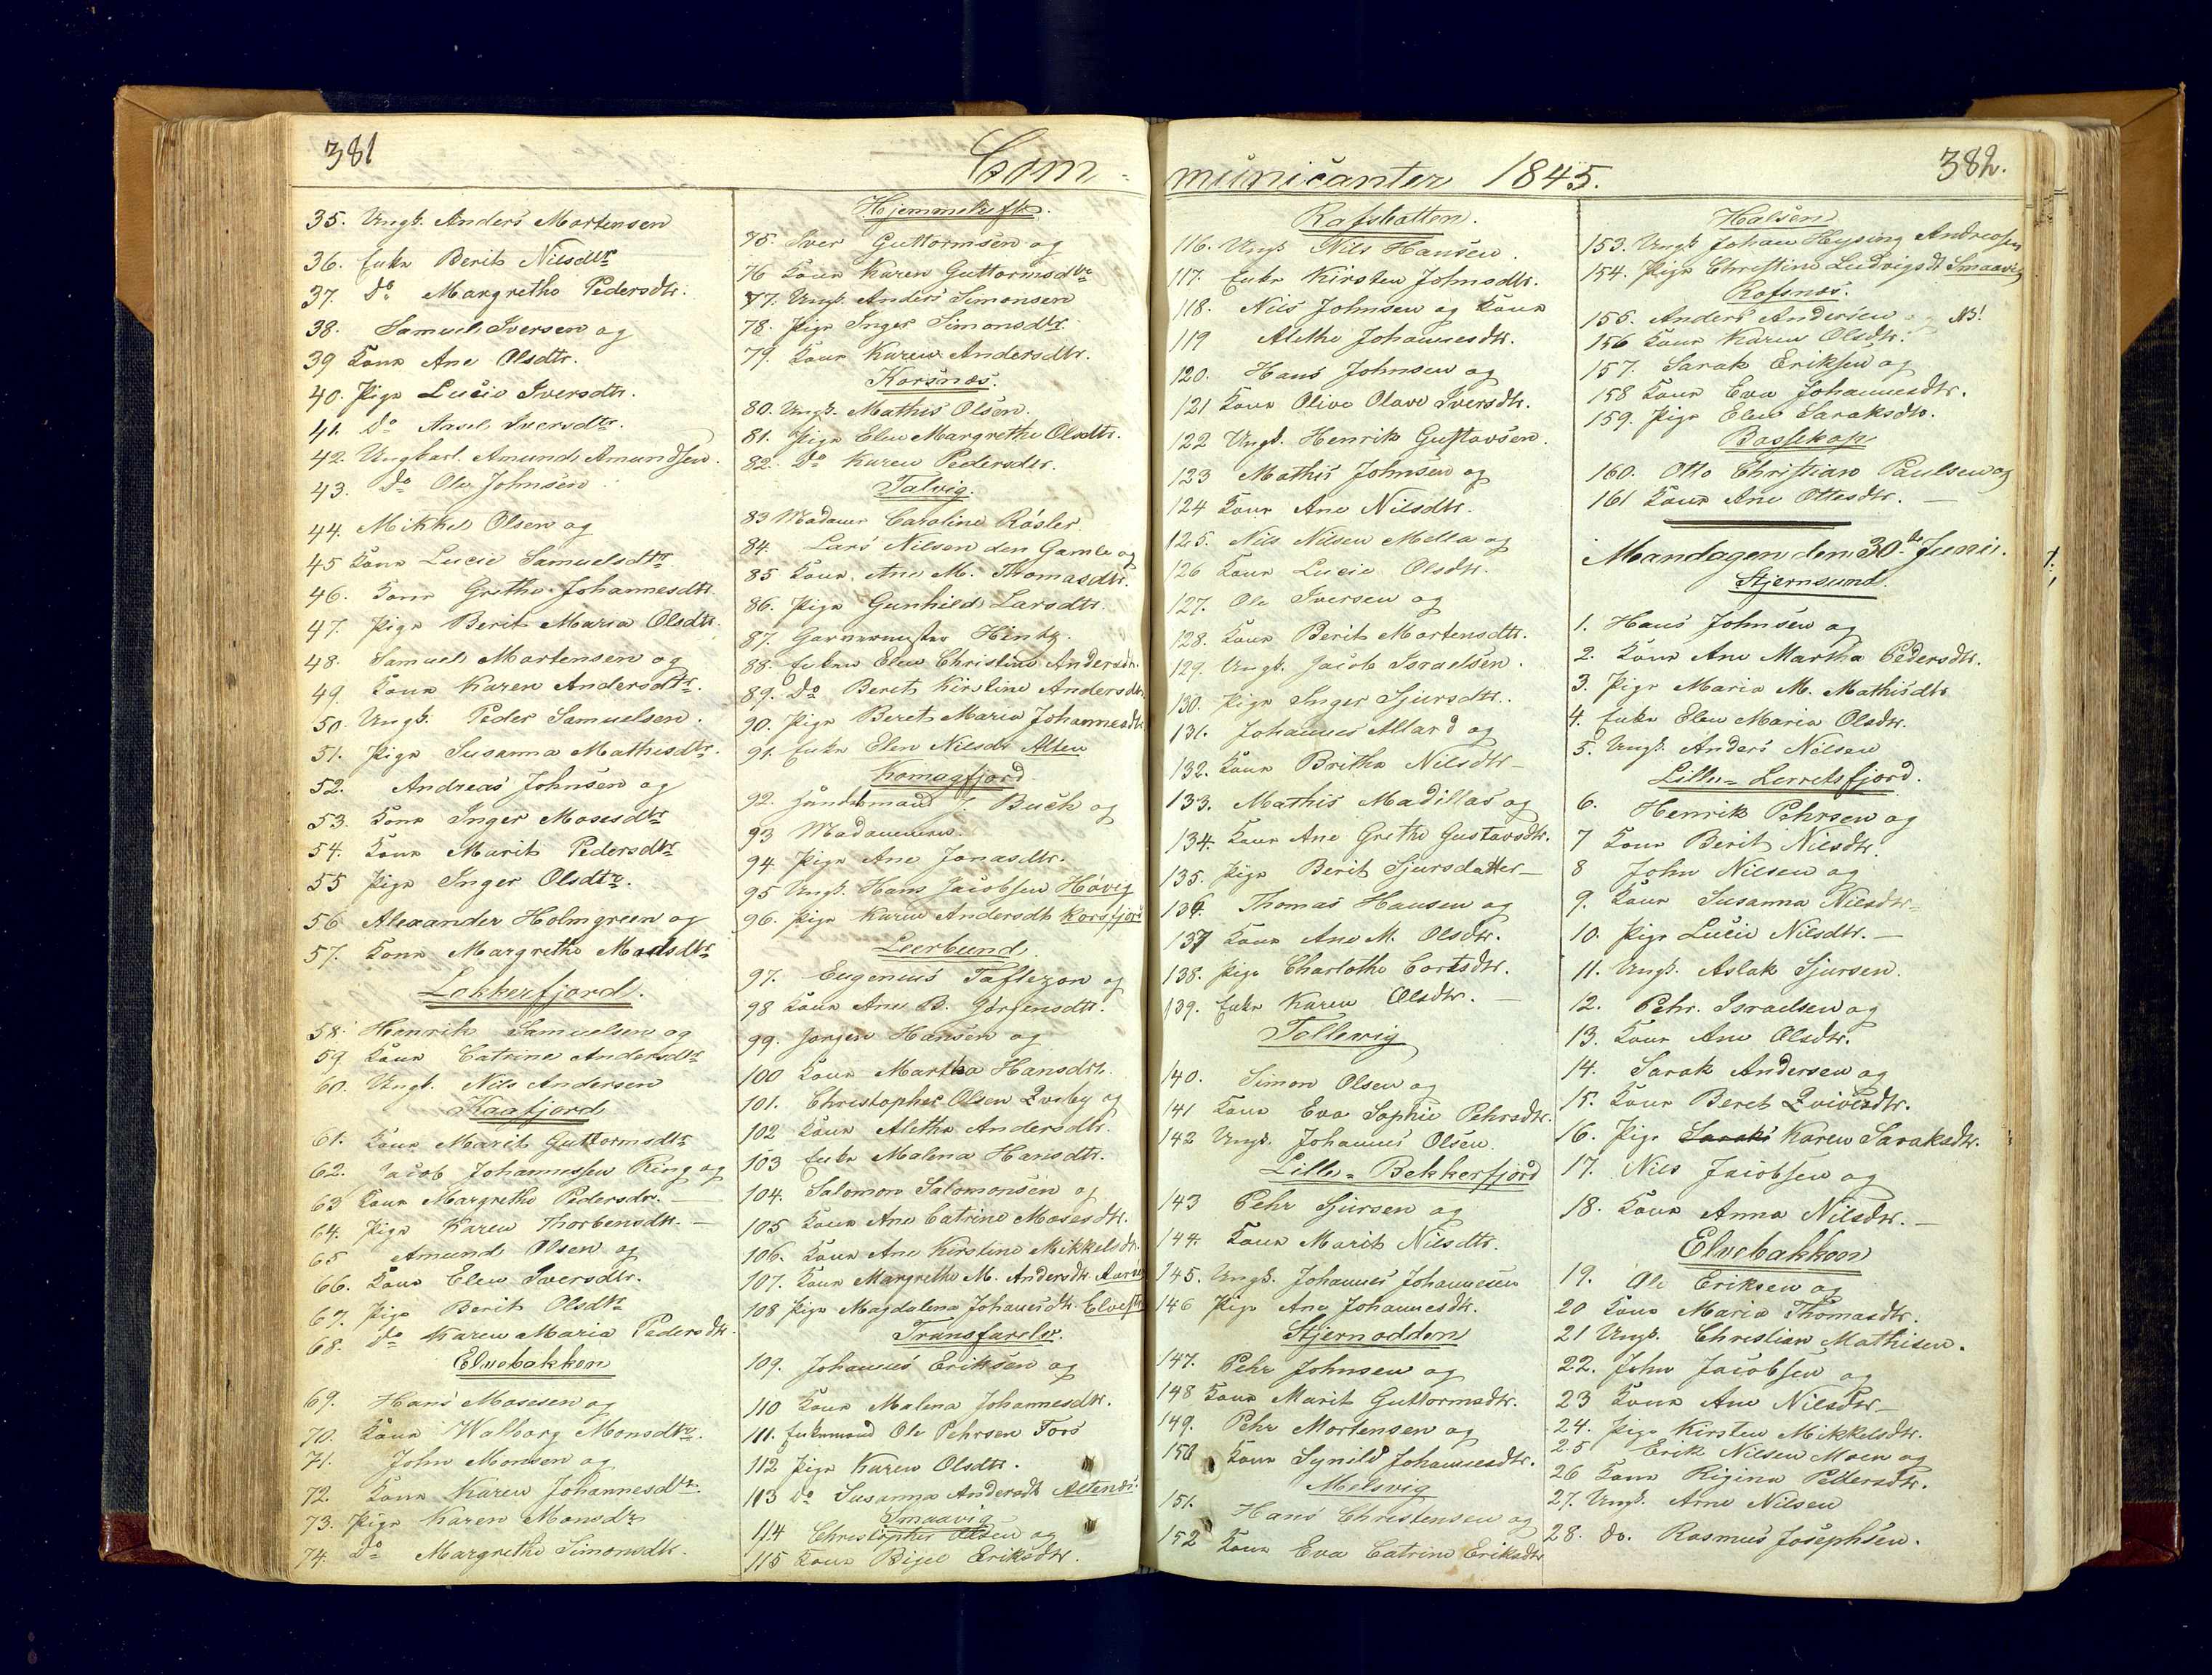 381
Com-
35. Ungk. Anders Mortensen
36. Enke Berit Nilsdtr
37. Do Margrethe Pedersdtr.
38. Samuel Iversen og
39 Kone Ane Olsdtr.
40. Pige Lucie Iversdtr.
41. Do Aasel Iversdtr.
42. Ungkarl. Amund Amundsen.
43. Do Ole Johnsen
44. Mikkel Olsen og
45 Kone Lucie Samuelsdtr
46. Kone Grethe Johannesdtr
47. Pige Berit Maria Olsdtr.
48. Samuel Mortensen og
49. Kone Karen Andersdtr.
50. Ungk. Peder Samuelsen.
51. Pige Susanna Mathisdtr.
52. Andreas Johnsen og
53. Kone Inger Mosesdtr
54. Kone Marit Pedersdtr
55 Pige Inger Olsdtr.
56 Alexander Holmgreen og
57. Kone Margrethe Madsdtr
Lokkerfjord.
58. Henrik Samuelsen og
59 Kone Catrine Andersdtr
60. Ungk. Nils Andersen
Kaafjord
61. Kone Marit Guttormsdtr
62. Jacob Johannessen Ring og
63 Kone Margrethe Pedersdtr. —
64. Pige Karen Thorbensdtr. —
65 Amund Olsen og
66. Kone Elen Iversdtr.
67. Pige Berit Olsdtr
68. Do Karen Maria Pedersdtr.
Elvebakken
69. Hans Mosesen og
70. Kone Walborg Monsdtr.
71. John Monsen og
72. Kone Karen Johannesdtr.
73. Pige Karen Monsdtr
74. Do Margrethe Simonsdtr.
Hjemmeluft.
75. Iver Guttormsen og
76 Kone Karen Guttormsdtr
77. Ungk. Anders Simonsen
78. Pige Inger Simonsdtr.
79. Kone Karen Andersdtr.
Korsnæs.
80. Ungk. Mathis Olsen.
81. Pige Elen Margrethe Olsdtr.
82. Do Karen Pedersdtr.
Talvig.
83 Madame Caroline Røsler
84. Lars Nilsen den Gamle og
85 Kone. Ane M. Thomasdtr.
86. Pige Gunhild Larsdtr.
87. Garvermester Hintz.
88. Enke Elen Christine Andersdtr.
89. Do Berit Kirstine Andersdtr
90. Pige Beret Maria Johannesdtr
91. Enke Elen Nilsdtr Alten
Komagfjord
92. Handelsmand J. Buch og
93 Madammen.
94. Pige Ane Jonasdtr.
95 Ungk. Hans Jacobsen Høvig
96. Pige Karen Andersdtr Korsfjord
Leerbund.
97. Eugenius Taftezon og
98 Kone Ane B. Jørgensdtr.
99. Jørgen Hansen og
100 Kone Martha Hansdtr.
101. Christopher Olsen Qvæby og
102 Kone Alethe Andersdtr.
103 Enke Malena Hansdtr.
104. Salomon Salomonsen og
105 Kone Ane Catrine Mosesdtr.
106. Kone Ane Kirstine Mikkelsdtr.
107. Kone Margrethe M. Andersdtr.
108 Pige Magdalena Johansdtr
Transfarelv.
109. Johannes Eriksen og
110 Kone Malena Johannesdtr.
111. Enkemand Ole Pehrsen Fors
112 Pige Karen Olsdtr.
113 Do Susanna Andersdtr Altenes.
Smaavig
114 Christopher Olsen og
115 Kone Eriksdtr.
municanter 1845.
382.
Rafsbotten.
116. Ungk. Nils Hansen.
117. Enke Kirsten Johnsdtr.
118. Nils Johnsen og Kone
119 Alethe Johannesdtr.
120. Hans Johnsen og
121 Kone Olive Olave Iversdtr.
122 Ungk. Henrik Gustavsen.
123 Mathis Johnsen og
124 Kone Ane Nilsdtr.
125. Nils Nilsen Mella og
126 Kone Lucie Olsdtr.
127. Ole Iversen og
128. Kone Berit Mortensdtr.
129. Ungk. Jacob Israelsen.
130. Pige Inger Sjursdtr.
131. Johannes Allard og
132. Kone Britha Nilsdtr —
133. Mathis Madillas og
134. Kone Ane Grethe Gustavsdtr.
135. Pige Berit Sjursdatter —
136. Thomas Hansen og
137 Kone Ane M. Olsdtr.
138. Pige Charlothe Cortsdtr.
139. Enke Karen Olsdtr. —
Tollevig
140. Simon Olsen og
141 Kone Eva Sophie Pehrsdtr.
142 Ungk. Johannes Olsen.
Lille-Bekkerfjord
143 Pehr Sjursen og
144. Kone Marit Nilsdtr.
145. Ungk. Johannes Johannesen
146 Pige Ane Johannesdtr.
Stjernodden
147. Pehr Johnsen og
148 Kone Marit Guttormsdtr.
149. Pehr Mortensen og
150 Kone Synild Johannesdtr.
Melsvig
151. Hans Christensen og
152 Kone Eva Catrine Eriksdtr
Halsen
153. Ungk. Johan Hysing Andreasen
154. Pige Christine Ludvigsdtr Smaavig
Rafsnæs.
155. Anders Andersen og NB!
156 Kone Karen Olsdtr.
157. Sarak Eriksen og
158 Kone Eva Johannesdtr.
159. Pige Elen Saraksdtr.
Bossekop
160. Otto Christian Paulsen og
161 Kone Ane Ottesdtr. —
Mandagen den 30te Junii.
Stjernsund.
1. Hans Johnsen og
2. Kone Ane Martha Pedersdtr.
3. Pige Maria M. Mathisdtr
4. Enke Elen Maria Olsdtr.
5. Ungk. Anders Nilsen
Lille-Lerretsfjord.
6. Henrik Pehrsen og
7 Kone Berit Nilsdtr.
8 John Nilsen og
9. Kone Susanna Nilsdtr
10. Pige Lucie Nilsdtr. —
11. Ungk. Aslak Sjursen.
12. Pehr. Israelsen og
13. Kone Ane Olsdtr.
14. Sarak Andersen og
15. Kone Beret Qvivesdtr.
16. Pige Saraks Karen Saraksdtr.
17. Nils Jacobsen og
18. Kone Anna Nilsdtr. —
Elvebakken
19. Ole Eriksen og
20 Kone Maria Thomasdtr.
21 Ungk. Christian Mathisen.
22. John Jacobsen og
23 Kone Ane Nilsdtr —
24. Pige Kirsten Mikkelsdtr.
25 Erik Nilsen Moen og
26 Kone Rigina Pedersdtr.
27. Ungk. Arne Nilsen
28. do. Rasmus Josephsen.